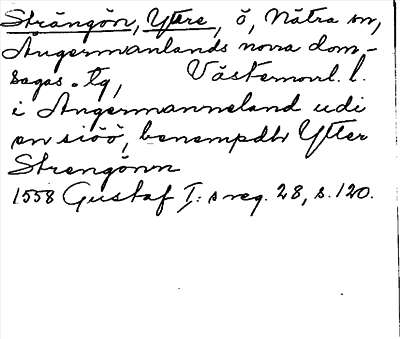 Strängön, Yttre, ö, Nätra sn,
Ångermanlands norra dom-
sagas tg, Västernorrl. l.
i Angermanneland udi
en siöö, benempdh Ytter
Strengönn
1558 Gustaf I:s reg. 28, s. 120.